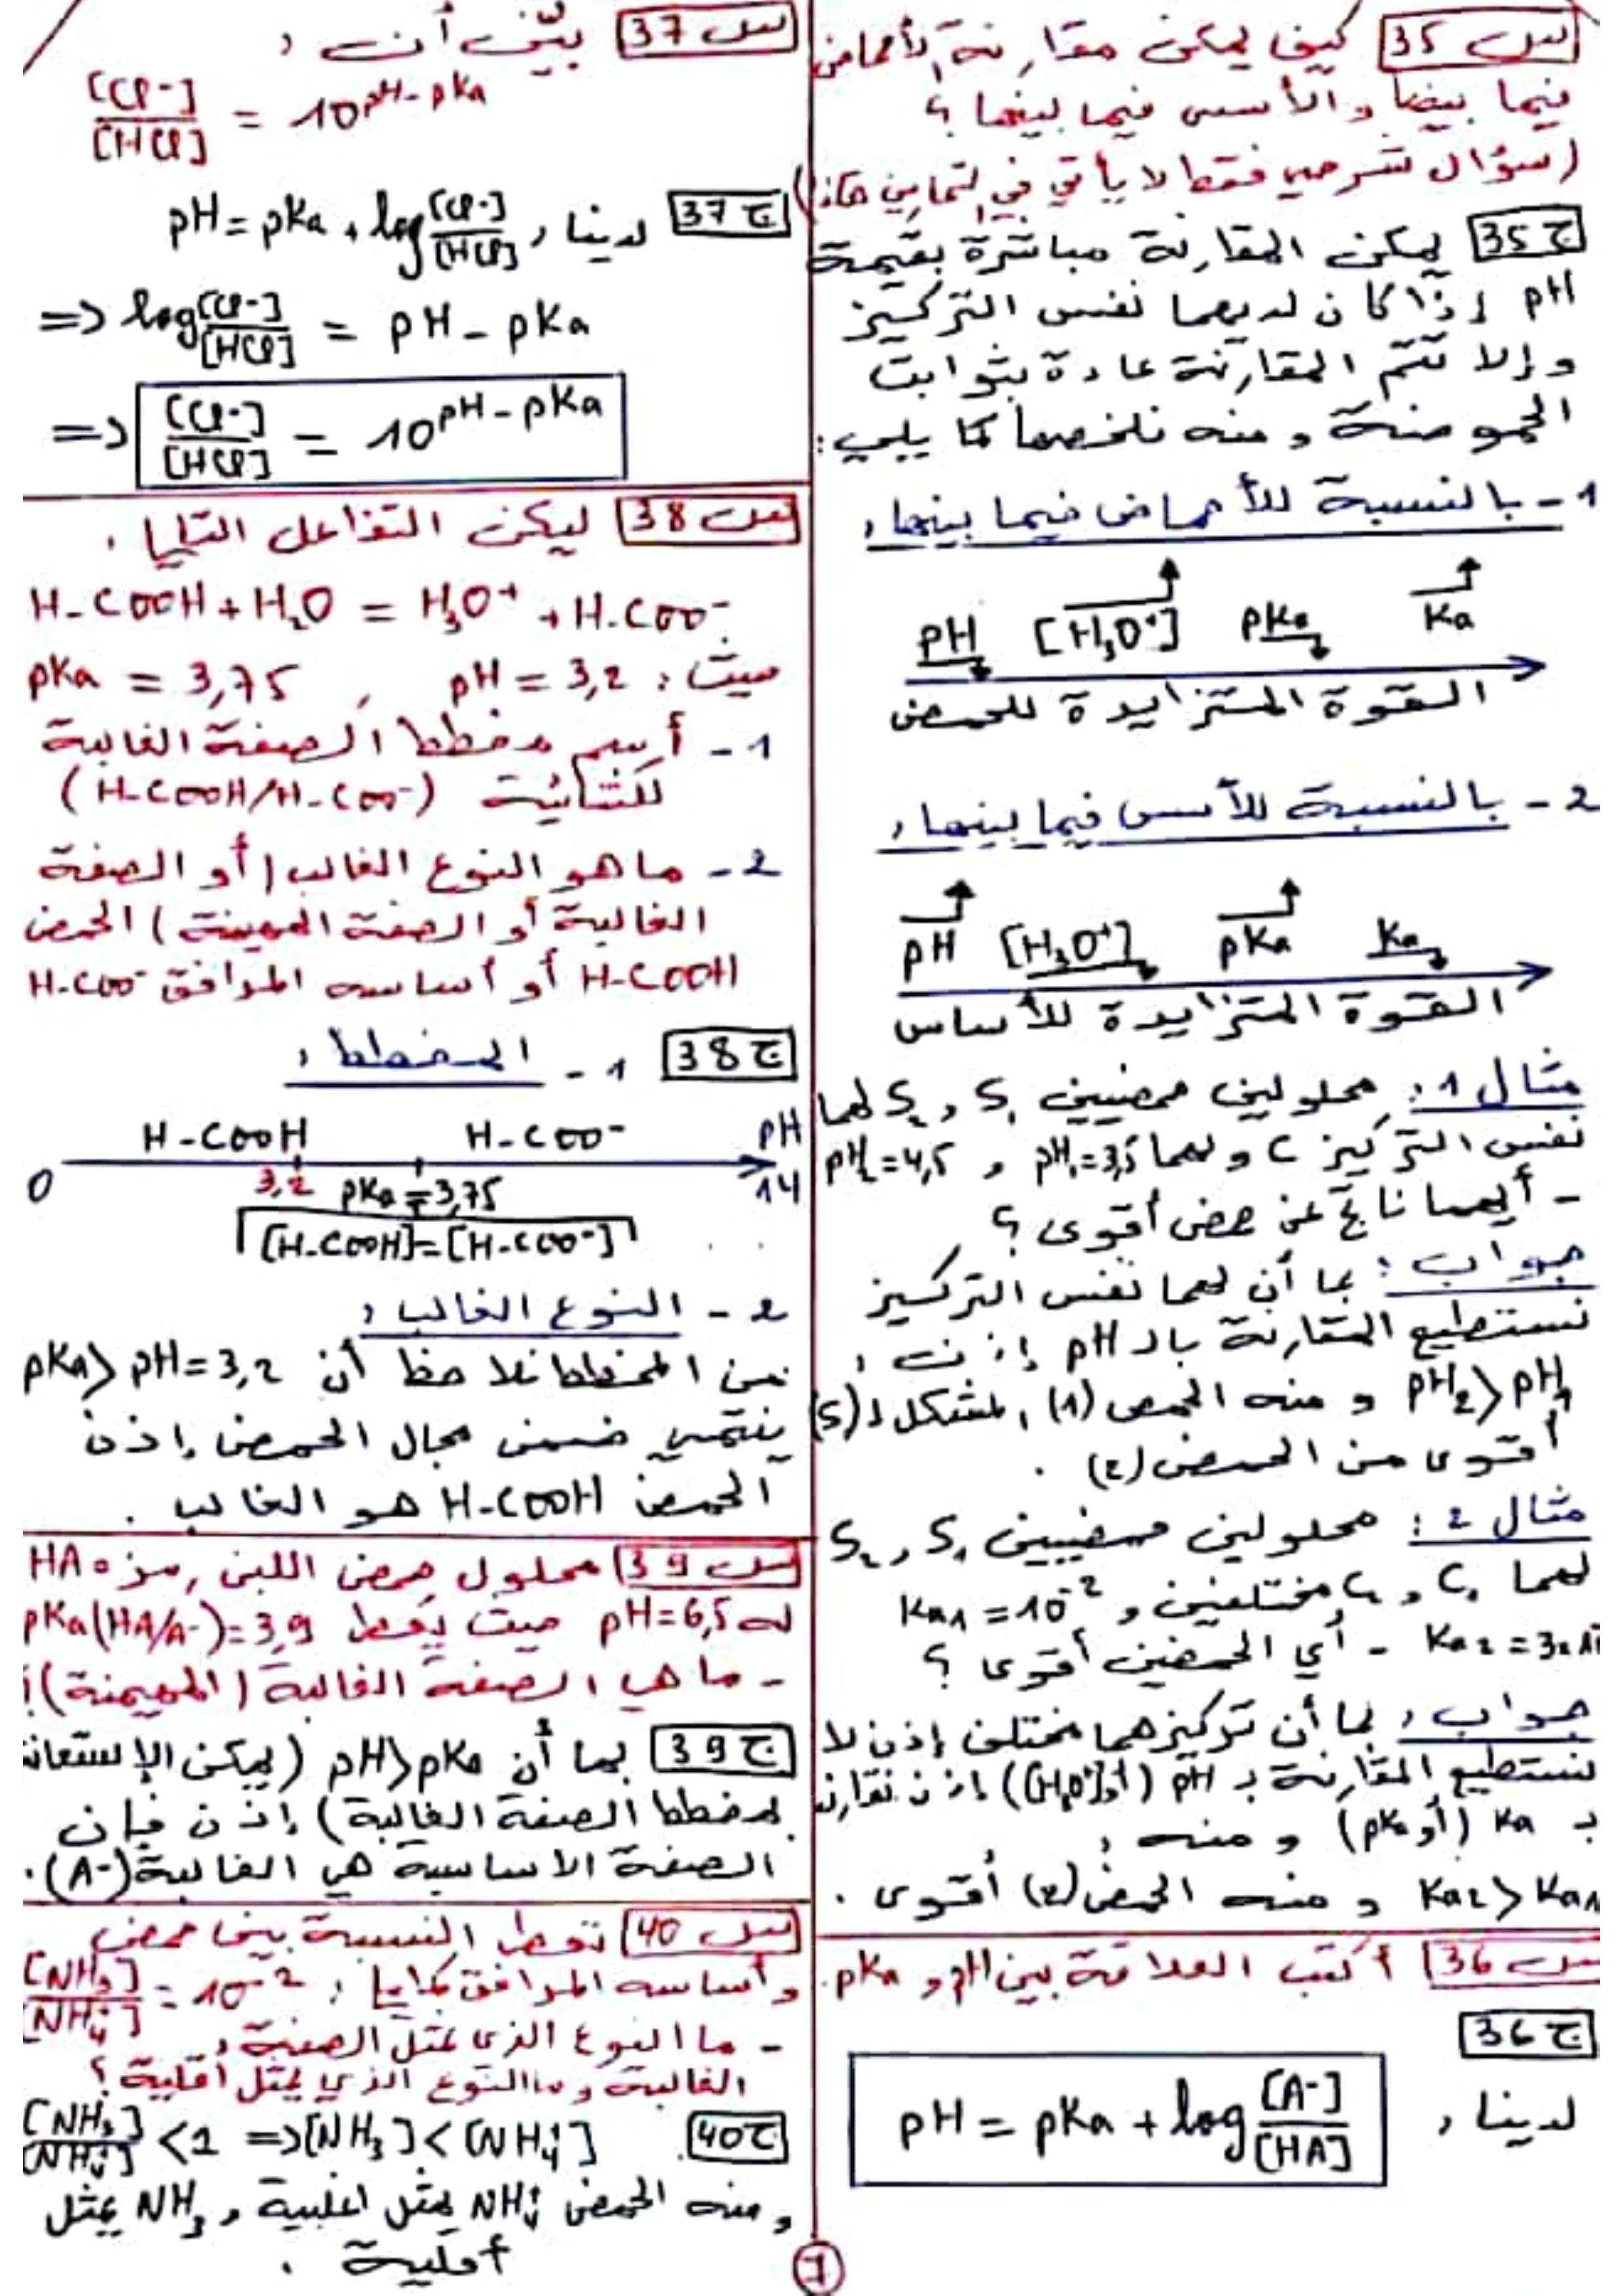 س 35 كيف يمكن مقارنة الأحماض
فيما بينها والأسس فيما بينها ؟
(سؤال شرحي فقط لا يأتي في التمارين هكذا)
ج 35 يمكن المقارنة مباشرة بقيمة
pH إذا كان لديهما نفس التركيز
وإلا تتم المقارنة عادة بثوابت
الحموضة ومنه نلخصها كما يلي :
1 - بالنسبة للأحماض فيما بينها ،
pH [H₃O⁺] pKa Ka
القوة المتزايدة للحمض
2 - بالنسبة للأسس فيما بينها ،
pH [H₃O⁺] pKa Ka
القوة المتزايدة للأساس
مثال 1 : محلولين حمضيين S₁ و S₂ لهما
نفس التركيز C ولهما pH₁=3,5 و pH₂=4,5
- أيهما ناتج عن حمض أقوى ؟
جواب : بما أن لهما نفس التركيز
نستطيع المقارنة بالـ pH إذن ،
pH₂>pH₁ ومنه الحمض (1) المشكل لـ (S)
أقوى من الحمض (2) .
مثال 2 : محلولين حمضيين S₁ و S₂
لهما C₁ و C₂ مختلفين و Ka₁ = 10⁻²
Ka₂ = 3x10 - أي الحمضين أقوى ؟
جواب ، بما أن تركيزهما مختلف إذن لا
نستطيع المقارنة بـ pH (أو [H₃O⁺]) إذن نقارن
بـ Ka (أو pKa) ومنه ،
Ka₂>Ka₁ ومنه الحمض (2) أقوى .
س 36 أكتب العلاقة بين pH و pKa.
ج 36
لدينا ، pH = pKa + log [A⁻]/[HA]
س 37 بيّن أن ،
[Cl⁻]/[HCl] = 10^(pH-pKa)
ج 37 لدينا ، pH = pKa + log [Cl⁻]/[HCl]
=> log [Cl⁻]/[HCl] = pH - pKa
=> [Cl⁻]/[HCl] = 10^(pH-pKa)
س 38 ليكن التفاعل التالي .
H-COOH + H₂O = H₃O⁺ + H-COO⁻
حيث : pH = 3,2 , pKa = 3,75
1 - أرسم مخطط الصفة الغالبة
للثنائية (H-COOH/H-COO⁻)
2 - ما هو النوع الغالب (أو الصفة
الغالبة أو الصفة المهيمنة) الحمض
H-COOH أو أساسه المرافق H-COO⁻
ج 38 1 - المخطط ،
H-COOH H-COO⁻ pH
0 3,2 pKa = 3,75 14
[H-COOH]=[H-COO⁻]
2 - النوع الغالب ،
من المخطط نلاحظ أن pKa> pH=3,2
ينتمي ضمن مجال الحمض إذن
الحمض H-COOH هو الغالب .
س 39 محلول حمض اللبن رمزه HA
له pH=6,5 حيث يعطى pKa(HA/A⁻)=3,9
- ما هي الصفة الغالبة (المهيمنة) ؟
ج 39 بما أن pH>pKa (يمكن الإستعانة
بمخطط الصفة الغالبة) إذن فإن
الصفة الاساسية هي الغالبة (A⁻).
س 40 تعطى النسبة بين حمض
وأساسه المرافق كمايلي : [NH₃]/[NH₄⁺] = 10⁻²
- ما النوع الذي يمثل الصفة
الغالبة وما النوع الذي يمثل أقلية ؟
ج 40 [NH₃]/[NH₄⁺] <1 => [NH₃]<[NH₄⁺]
ومنه الحمض NH₄⁺ يمثل اغلبية و NH₃ يمثل
أقلية .
7